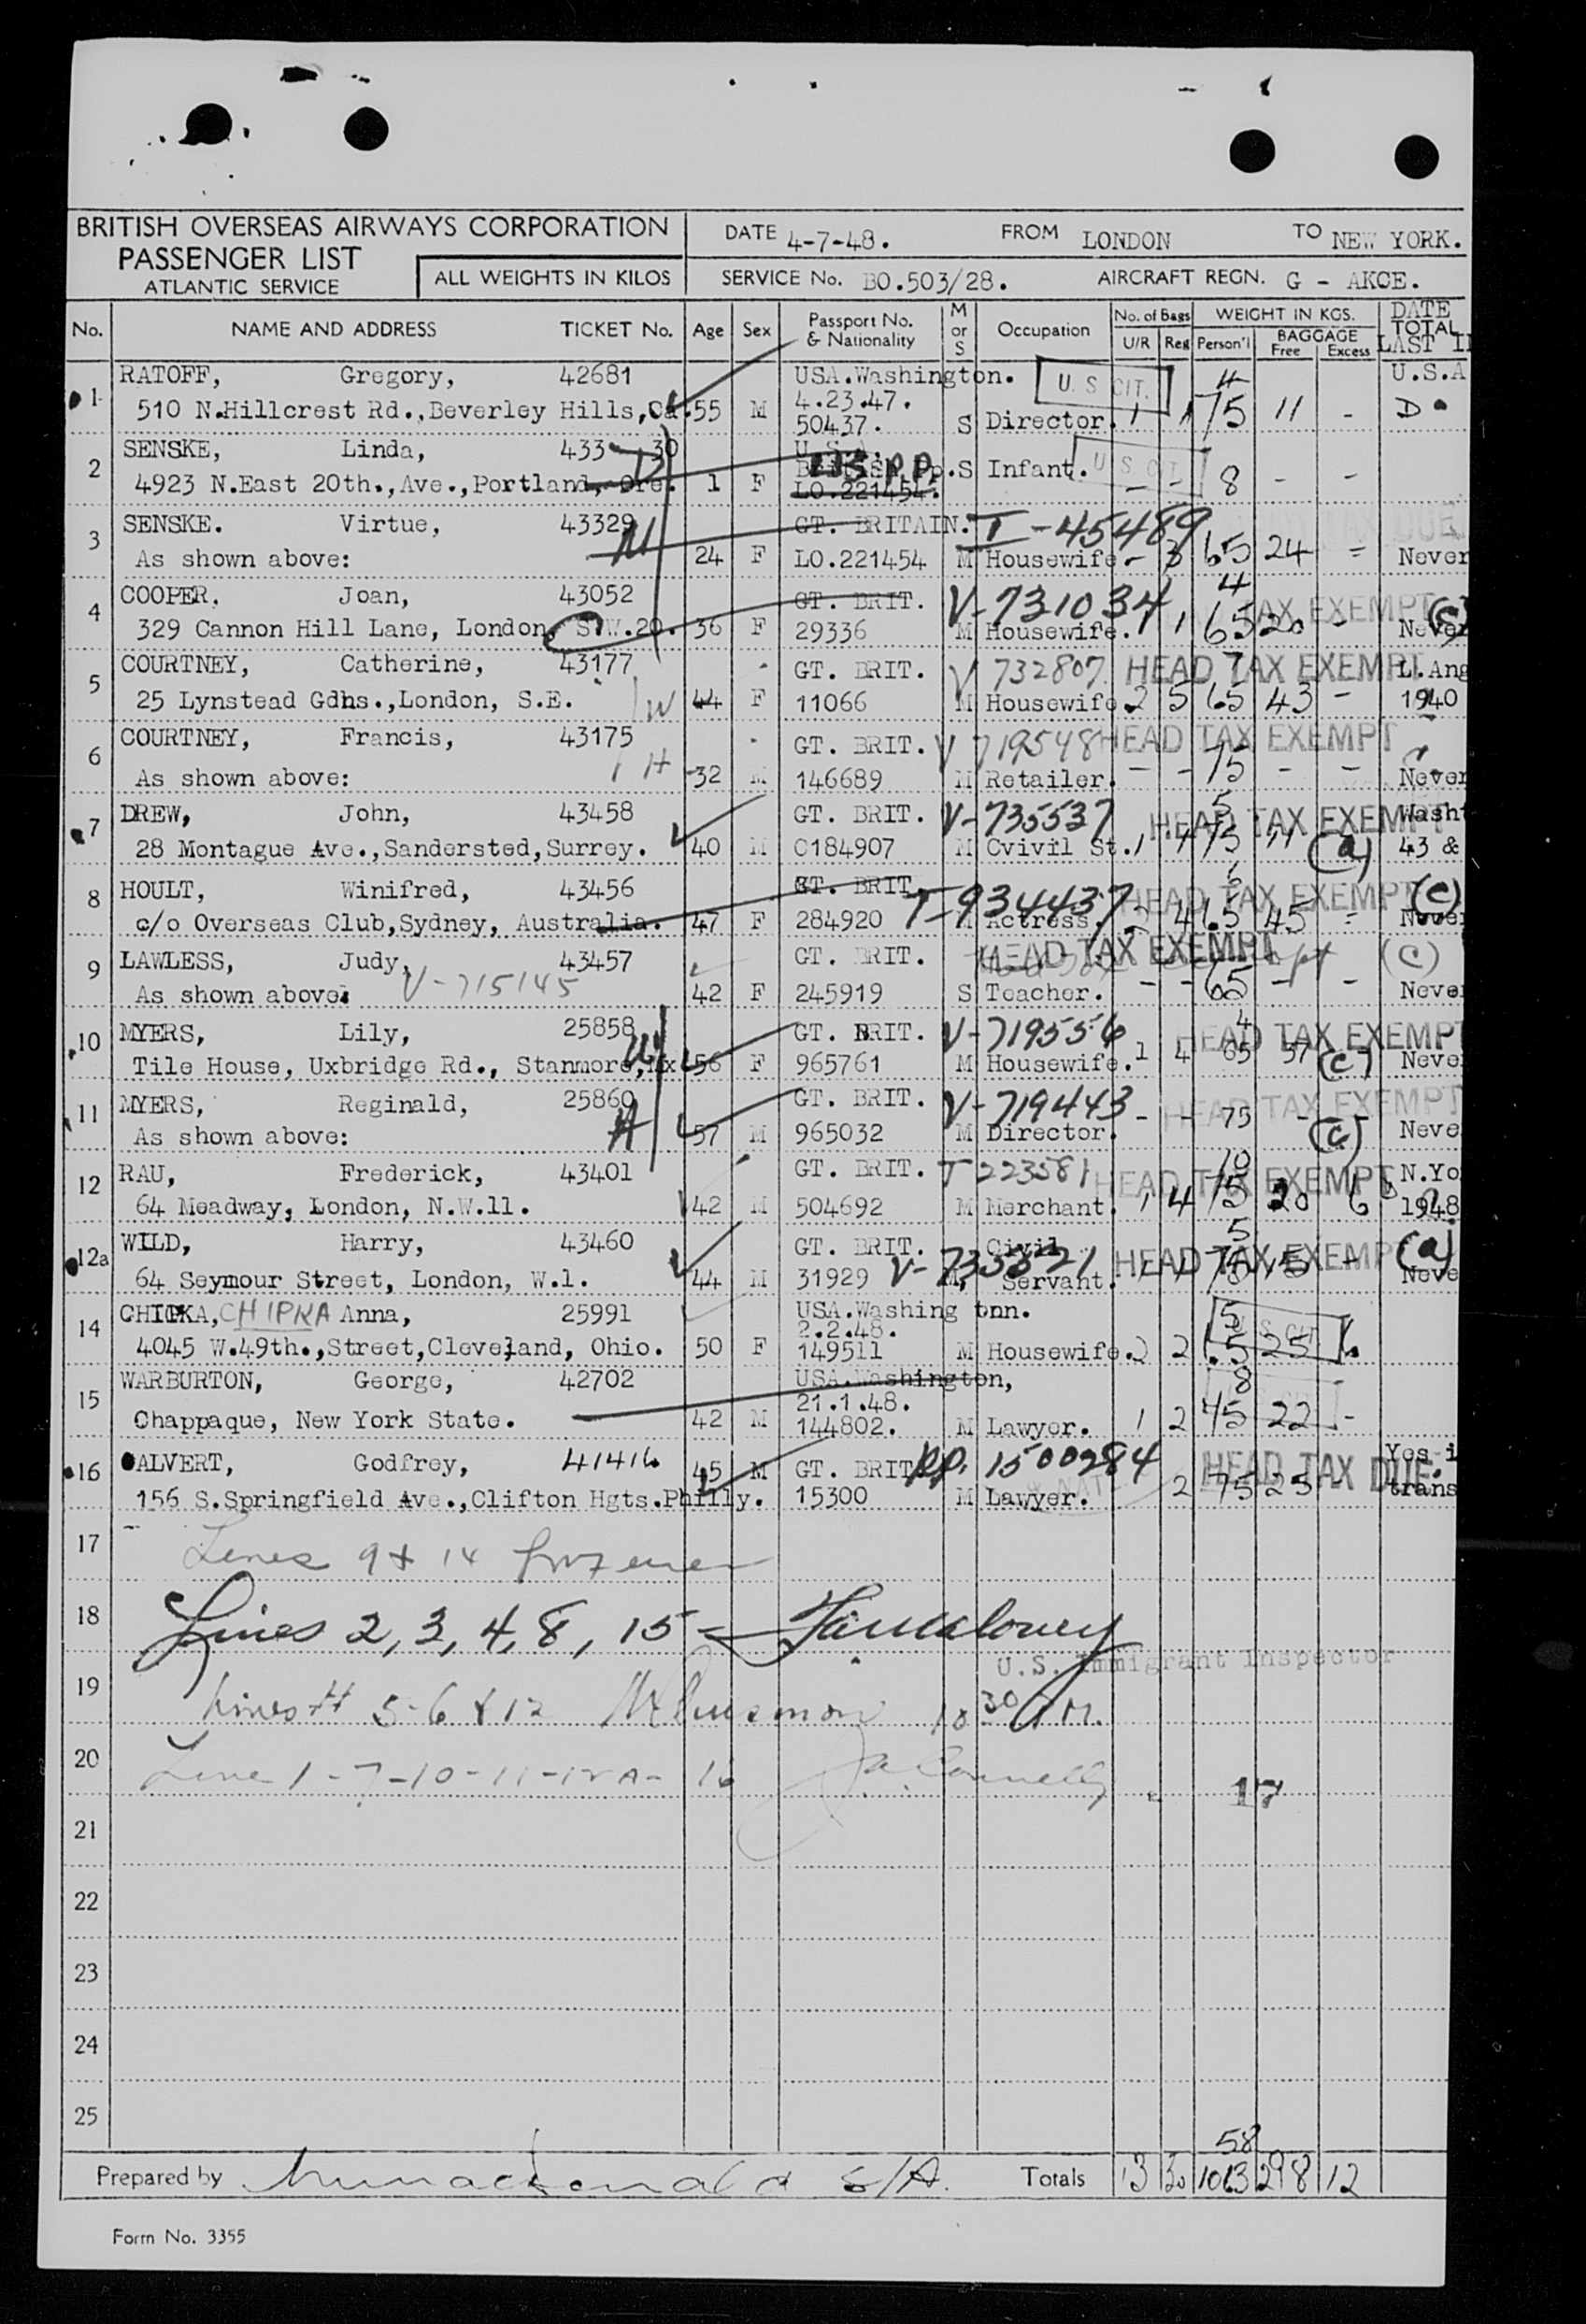 BRITISH OVERSEAS AIRWAYS CORPORATION
PASSENGER LIST
ATLANTIC SERVICE
ALL WEIGHTS IN KILOS
DATE 4-7-48. FROM LONDON TO NEW YORK.
SERVICE No. BO.503/28. AIRCRAFT REGN. G - AKCE.
No. NAME AND ADDRESS TICKET No. Age Sex Passport No. & Nationality M or S Occupation No. of Bags U/R Reg WEIGHT IN KGS. Person'l BAGGAGE Free Excess DATE TOTAL LAST I
1 RATOFF, Gregory, 42681 USA.Washington. U.S. CIT. 4 U.S.A
510 N.Hillcrest Rd.,Beverley Hills,Ca. 55 M 4.23.47. 50437. S Director. 1 1 75 11 - D
2 SENSKE, Linda, 433 30 U.S.A.
4923 N.East 20th.,Ave.,Portland, Ore. 1 F LO.221454. p.p. S Infant. U S CIT - - 8 - -
3 SENSKE. Virtue, 43329 M GT. BRITAIN. T-45489
As shown above: 24 F LO.221454 M Housewife - 3 65 24 = Never
4 COOPER, Joan, 43052 GT. BRIT. V-731034 4 TAX EXEMPT (c)
329 Cannon Hill Lane, London, S.W.20. 36 F 29336 M Housewife. 1 1 65 20 - Never
5 COURTNEY, Catherine, 43177 GT. BRIT. V 732807 HEAD TAX EXEMPT L.Ang
25 Lynstead Gdns.,London, S.E. W 44 F 11066 M Housewife 2 5 65 43 - 1940
6 COURTNEY, Francis, 43175 GT. BRIT. V 719548 HEAD TAX EXEMPT
As shown above: H 32 M 146689 M Retailer. - - 75 - - Never
7 DREW, John, 43458 GT. BRIT. V-735537 5 HEAD TAX EXEMPT Washt
28 Montague Ave.,Sandersted,Surrey. 40 M C184907 M Cvivil St. 1 1 75 11 (a) 43 &
8 HOULT, Winifred, 43456 GT. BRIT T-934437 HEAD TAX EXEMPT (c)
c/o Overseas Club,Sydney, Australia. 47 F 284920 M Actress. 2 4 65 45 = Never
9 LAWLESS, Judy, 43457 GT. BRIT. HEAD TAX EXEMPT (c)
As shown above: V-715145 42 F 245919 S Teacher. - - 65 - - Neve
10 MYERS, Lily, 25858 W GT. BRIT. V-719556 4 HEAD TAX EXEMPT
Tile House, Uxbridge Rd., Stanmore,Mx 56 F 965761 M Housewife. 1 4 65 37 (c) Neve
11 MYERS, Reginald, 25860 H GT. BRIT. V-719443 HEAD TAX EXEMPT
As shown above: 57 M 965032 M Director. - - 75 - (c) Neve
12 RAU, Frederick, 43401 GT. BRIT. T 223581 10 HEAD TAX EXEMPT N.Yo
64 Meadway, London, N.W.11. 42 M 504692 M Merchant. 1 4 75 20 6 1948
12a WILD, Harry, 43460 GT. BRIT. V-735521 Civil 5 HEAD TAX EXEMPT (a)
64 Seymour Street, London, W.1. 44 M 31929 M Servant. 1 1 75 15 - Neve
14 CHIPKA, CHIPKA Anna, 25991 USA.Washing tnn. 5 U.S. CIT
4045 W.49th.,Street,Cleveland, Ohio. 50 F 2.2.48. 149511 M Housewife. 2 2 65 25
15 WARBURTON, George, 42702 USA.Washington, 8
Chappaque, New York State. 42 M 21.1.48. 144802. M Lawyer. 1 2 75 22 -
16 CALVERT, Godfrey, 41416 45 M GT. BRIT pp. 1500284 HEAD TAX DUE Yes i
156 S.Springfield Ave.,Clifton Hgts.Philly. 15300 M Lawyer. 2 75 25 - trans
17 Lines 9 + 14
18 Lines 2, 3, 4, 8, 15 -
U.S. Immigrant Inspector
19 Lines # 5-6 & 12 10 30 AM.
20 Line 1-7-10-11-12A- 16 17
21
22
23
24
25
58
Prepared by S/A. Totals 13 30 1013 298 12
Form No. 3355